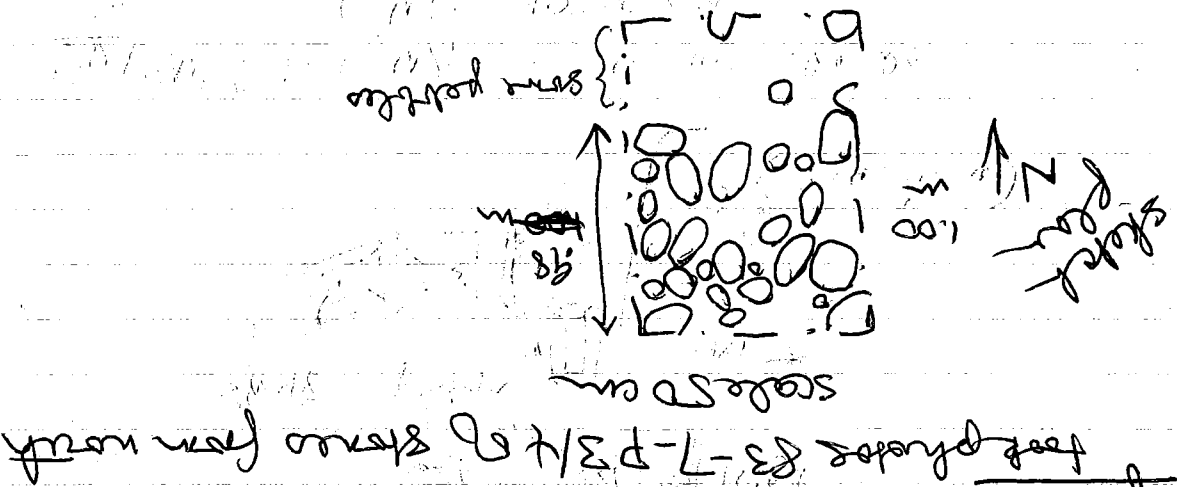 took photos 83-7-P3/4 of stones from north
scale 50 cm
sketch
plan
N
1.00
m
.98
m
some pebbles